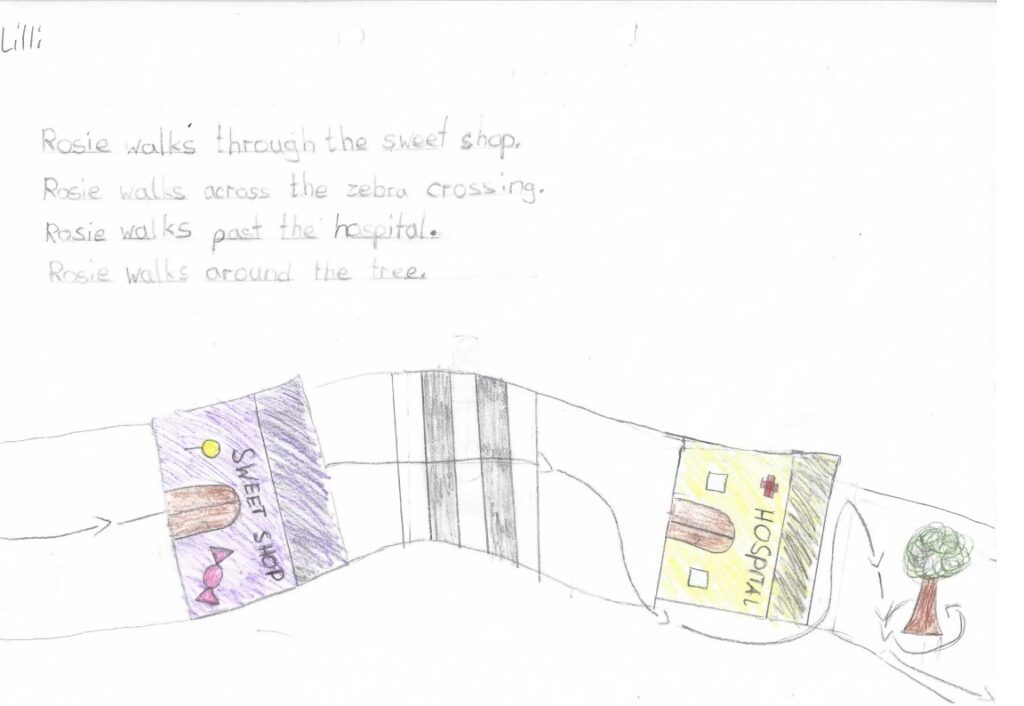 Lilli
Rosie walks through the sweet shop.
Rosie walks across the zebra crossing.
Rosie walks past the hospital.
Rosie walks around the tree.
SWEET SHOP
HOSPITAL